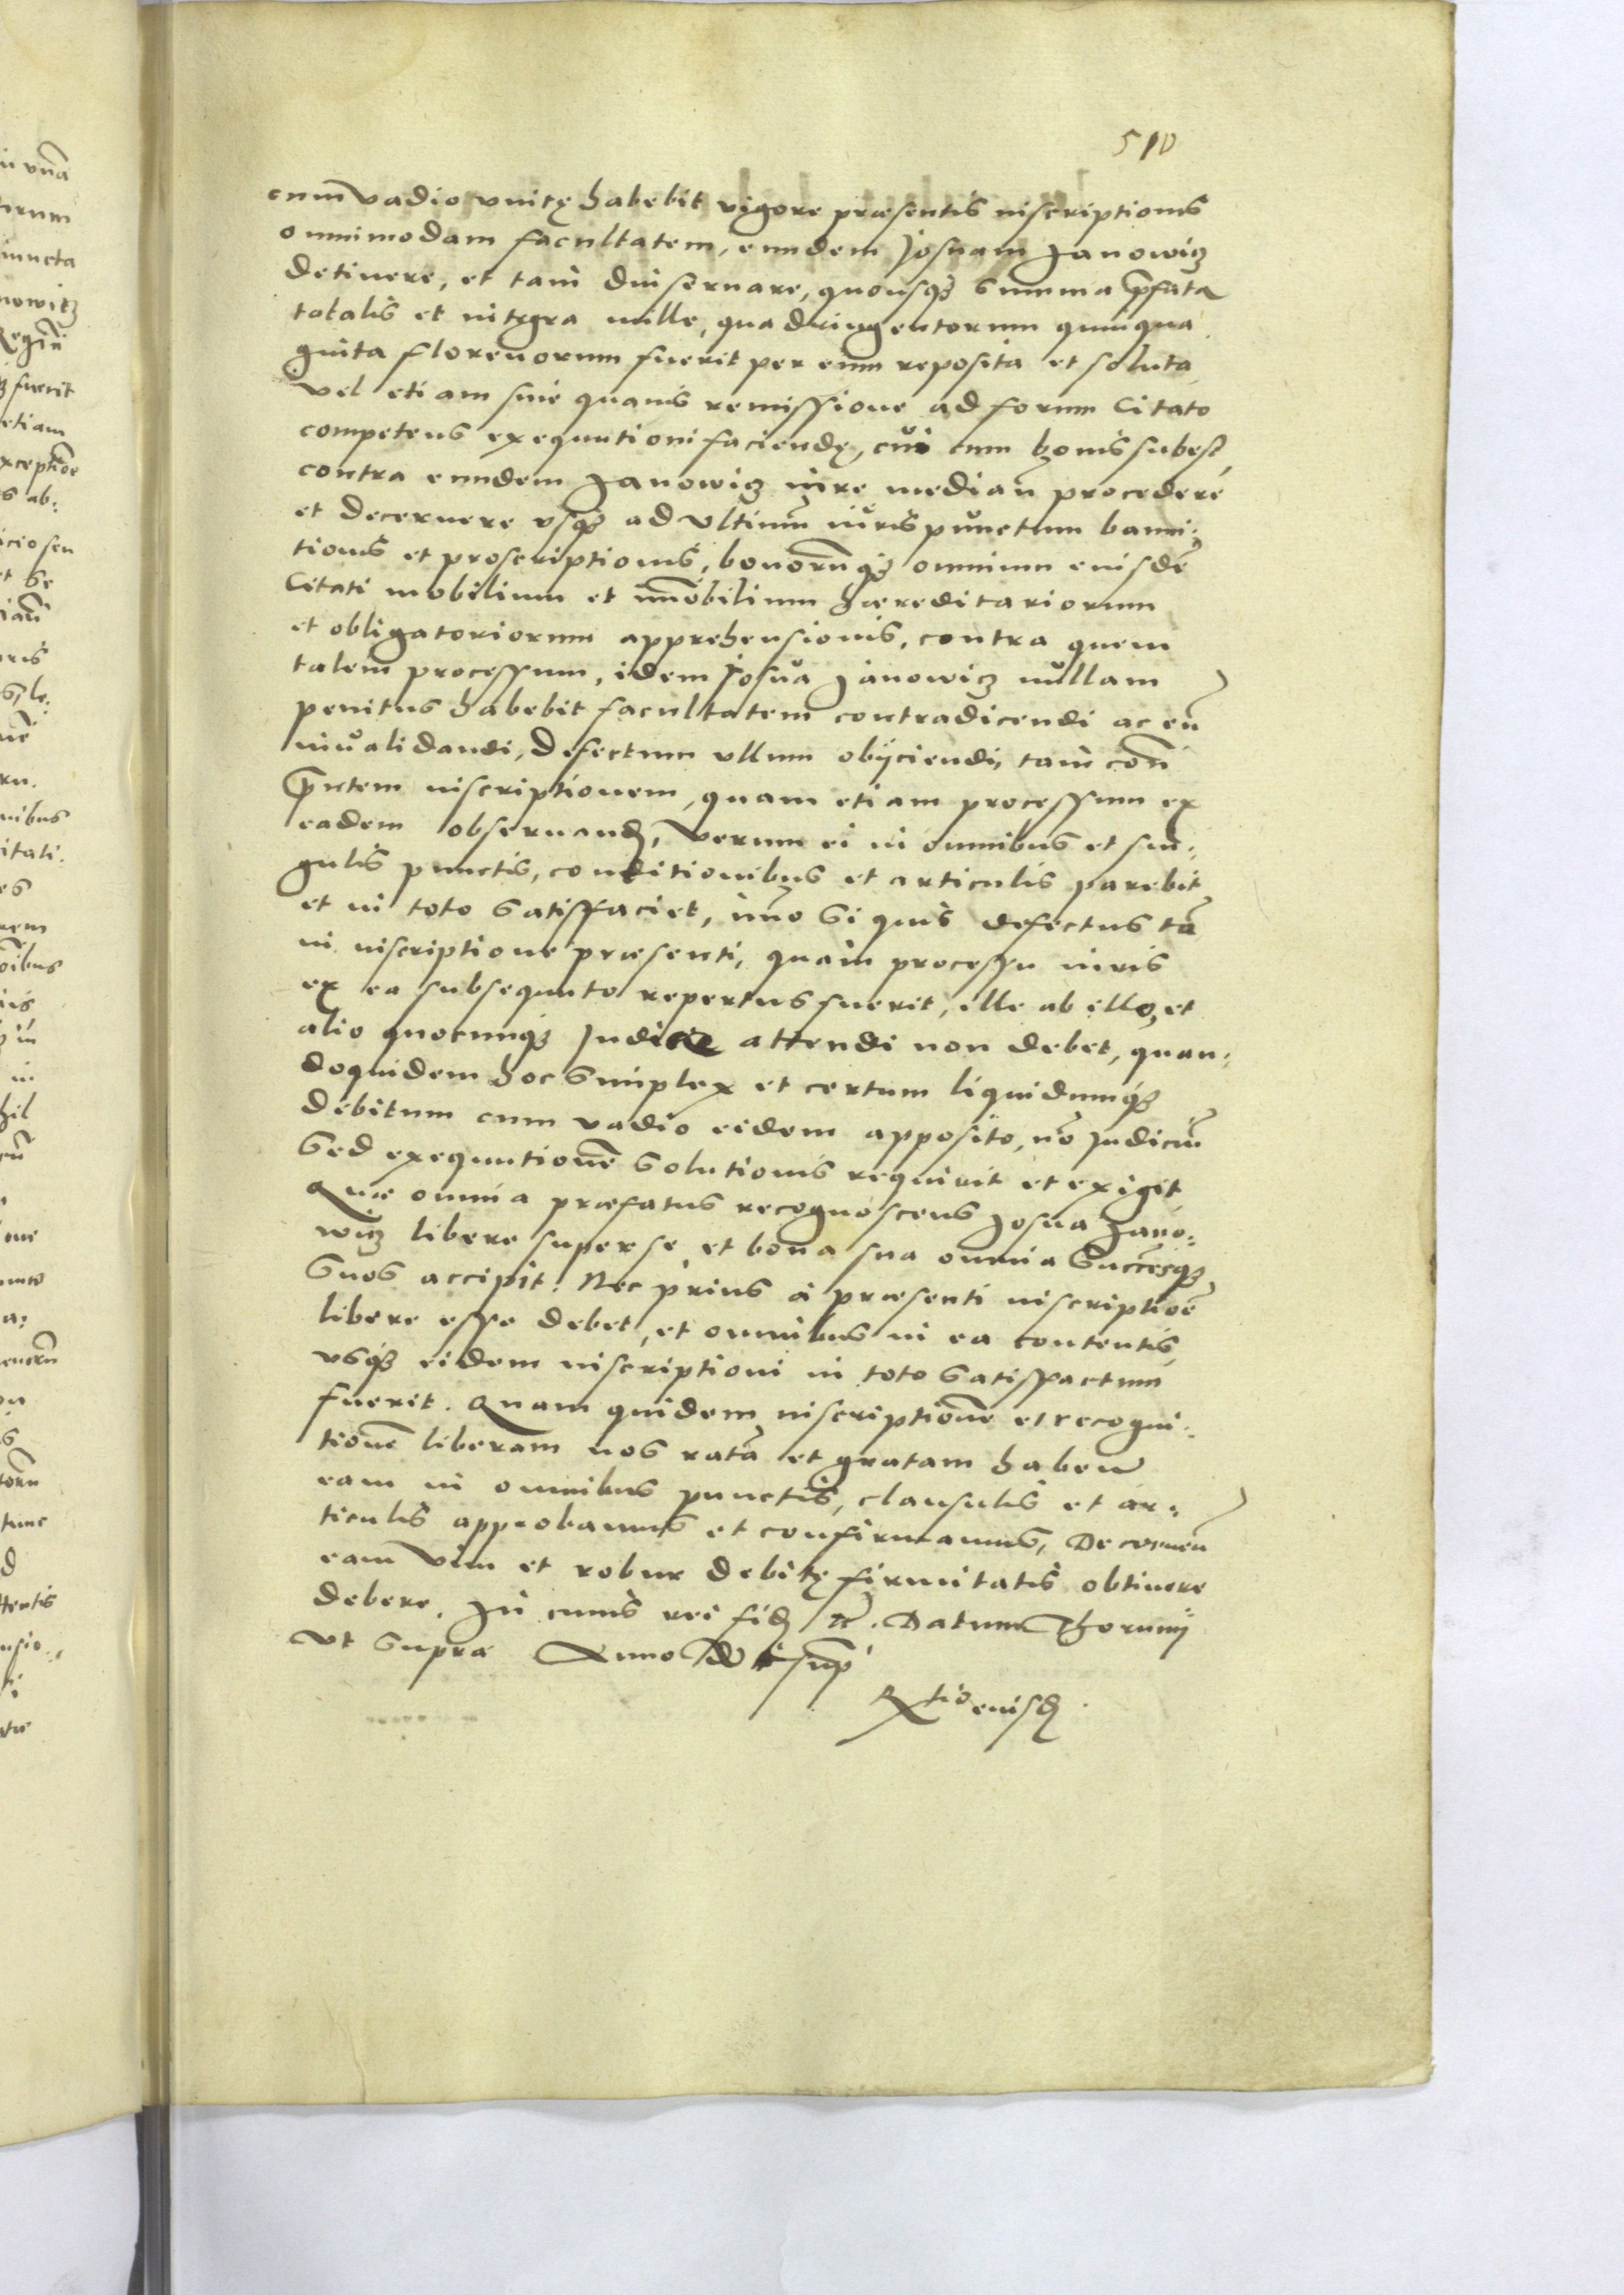 510
cum vadio unitę habebit vigore præsentis inscriptionis
omnimodam facultatem, eundem Josuam Janowicz
detinere, et tam diu seruare, quousq3 summa p̄fata
totalis et integra mille, quadringentorum quinqua
ginta florenorum fuerit per eum reposita et soluta,
vel etiam sine quauis remissione ad forum Citato
competens exequutioni faciendę, cui cum bonis subest,
contra eundem Janowicz iure median̄ procedere
et decernere vsq3 ad vltimū iuris punctum banni:
tionis et proscriptionis, bonorūq3 omnium eiusdē
Citati mobilium et im̄obilium hæreditariorum
et obligatoriorum apprehensionis, contra quem
talem processum, idem Josua Janowicz nullam
penitus habebit facultatem contradicendi ac eū
inualidandi, Defectum vllum obijciendi, tam con̄
p̄ntem inscriptionem, quam etiam processum ex
eadem obseruand, verum ei in omnibus et sin:
gulis punctis, conditionibus et articulis parebit
et in toto satisfaciet, imo si quis defectus tā
in inscriptione præsenti, quàm processu iuris
ex ea subsequuto repertus fuerit, ille ab illo, et
alio quocunq3 Judice attendi non debet, quan:
doquidem hoc simplex et certum liquidumq3
debitum cum vadio eidem apposito, nō Judiciū
sed exequutionē solutionis requirit et exigit,
Quæ omnia præfatus recognoscens Josua Jano:
wicz libere super se, et bona sua omnia Succēsq3
suos accipit. Nec prius à præsenti inscriptiōe
libere esse debet, et omnibus in ea contentis,
vsq3 eidem inscriptioni in toto satisfactum
fuerit. Quam quidem inscriptionē et recogni:
tionē liberam nos ratā et gratam haben̄
eam in omnibus punctis, clausulis et ar:
ticulis approbamus et confirmamus, Decernen̄
eam vim et robur debitę firmitatis obtinere
debere. In cuius rei fid etc. Datum Thorunij
vt supra Anno D sup
Rtio eiusd.